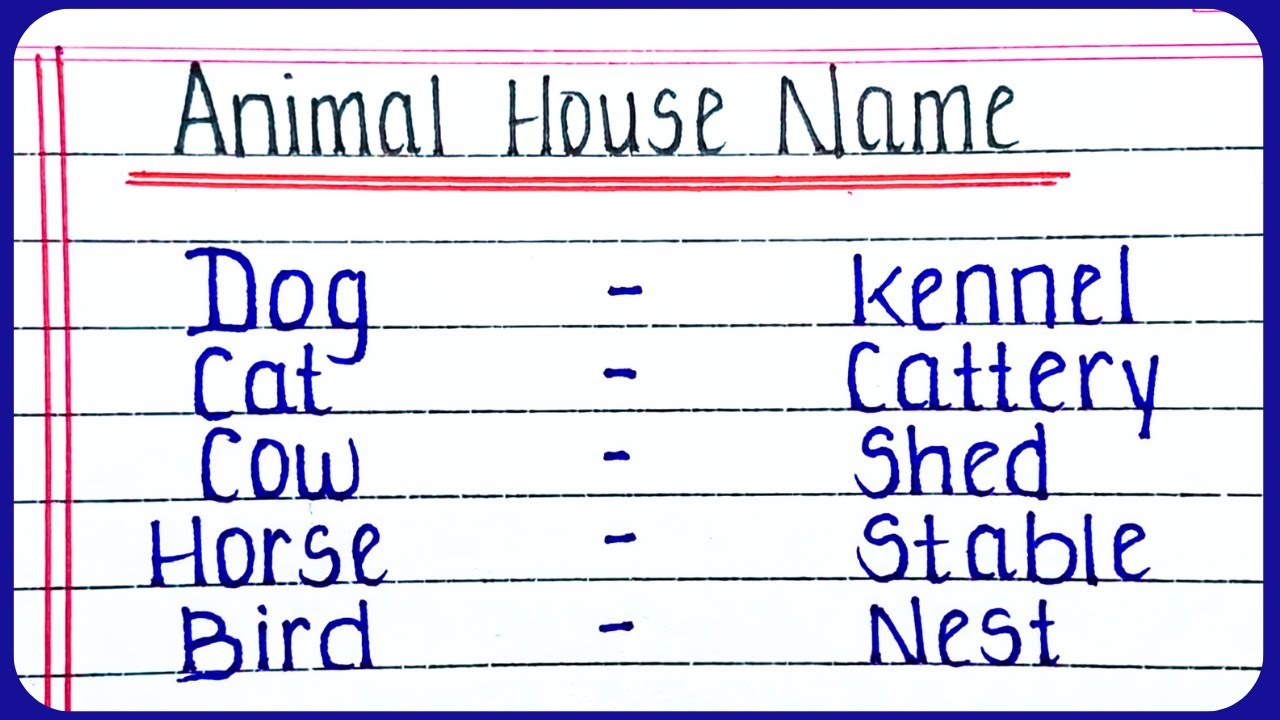 Animal House Name
Dog - Kennel
Cat - Cattery
Cow - Shed
Horse - Stable
Bird - Nest